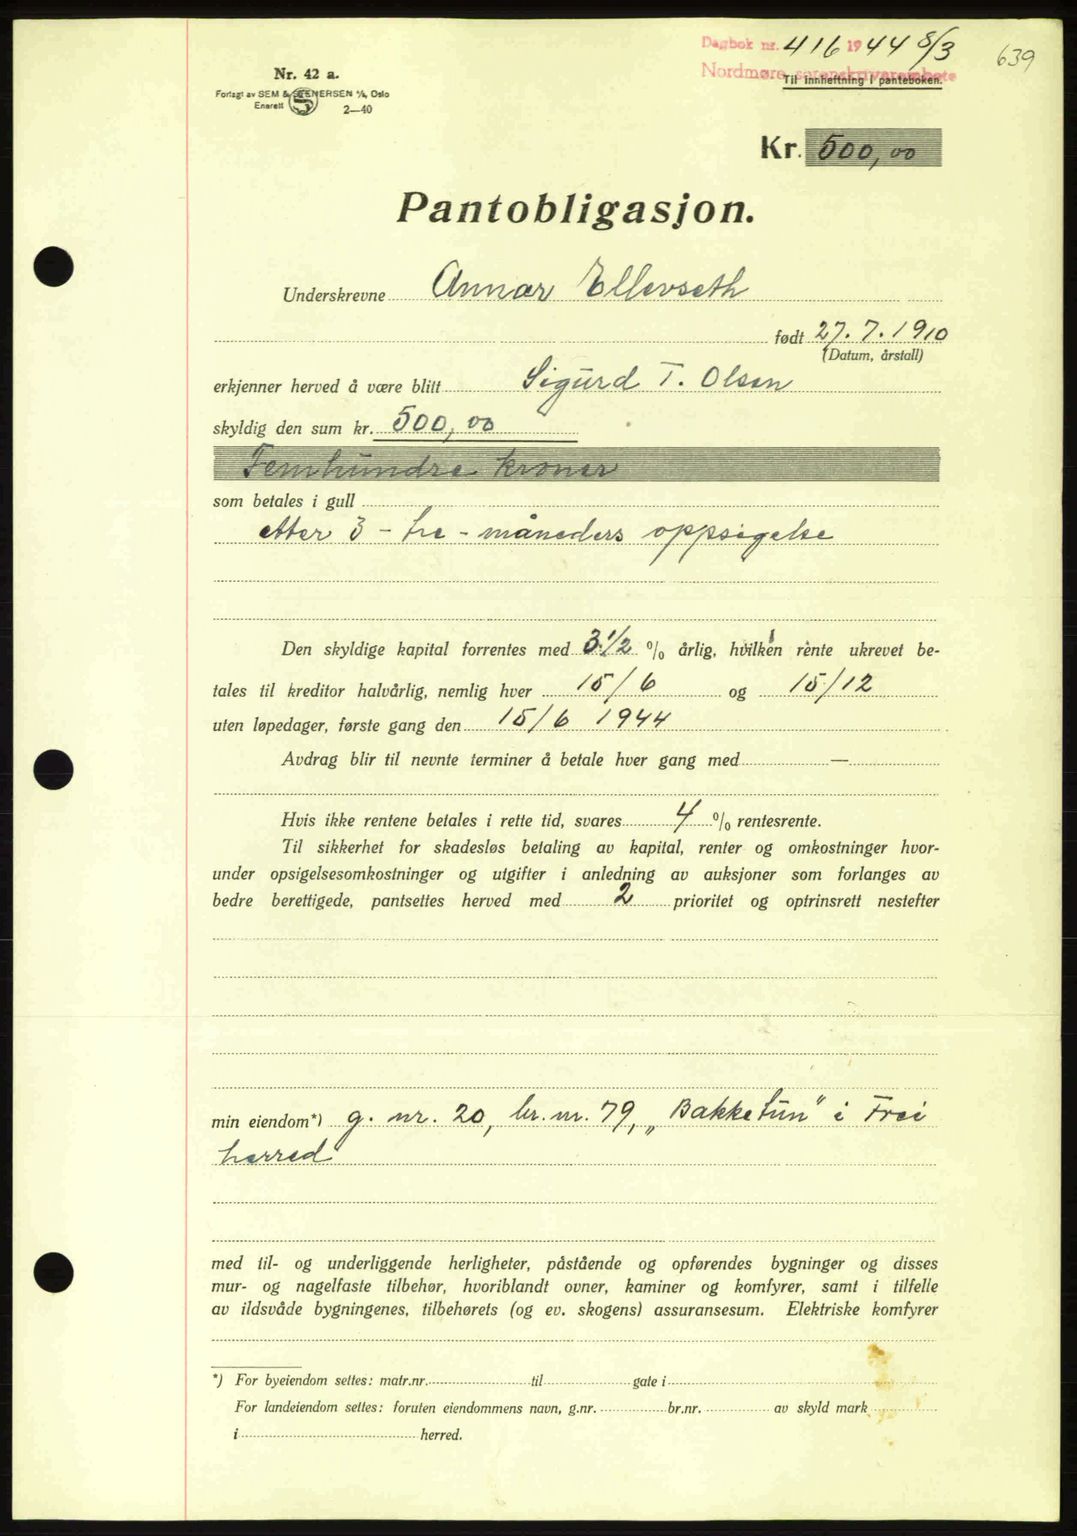 Dagbok nr. 416 1944 8/3
639
Nordmøre sorenskriverembete
Til innheftning i panteboken.
Nr. 42 a.
Forlagt av SEM & STENERSEN A/S, Oslo
Enerett
S
2—40
Kr. 500,00
Pantobligasjon.
Underskrevne Annar Ellevseth
født 27.7.1910
(Datum, årstall)
erkjenner herved å være blitt Sigurd T. Olsen
skyldig den sum kr. 500,00
Femhundre kroner
som betales i gull
etter 3 - tre - måneders oppsigelse
Den skyldige kapital forrentes med 3 1/2 % årlig, hvilken rente ukrevet be-
tales til kreditor halvårlig, nemlig hver 15/6 og 15/12
uten løpedager, første gang den 15/6 1944
Avdrag blir til nevnte terminer å betale hver gang med —
Hvis ikke rentene betales i rette tid, svares 4 % rentesrente.
Til sikkerhet for skadesløs betaling av kapital, renter og omkostninger hvor-
under opsigelsesomkostninger og utgifter i anledning av auksjoner som forlanges av
bedre berettigede, pantsettes herved med 2 prioritet og optrinsrett nestefter
min eiendom*) g. nr. 20, br. nr. 79, „Bakketun" i Frei
herred
med til- og underliggende herligheter, påstående og opførendes bygninger og disses
mur- og nagelfaste tilbehør, hvoriblandt ovner, kaminer og komfyrer, samt i tilfelle
av ildsvåde bygningenes, tilbehørets (og ev. skogens) assuransesum. Elektriske komfyrer
*) For byeiendom settes: matr.nr. til gate i
For landeiendom settes: foruten eiendommens navn, g.nr. br.nr. av skyld mark
i herred.